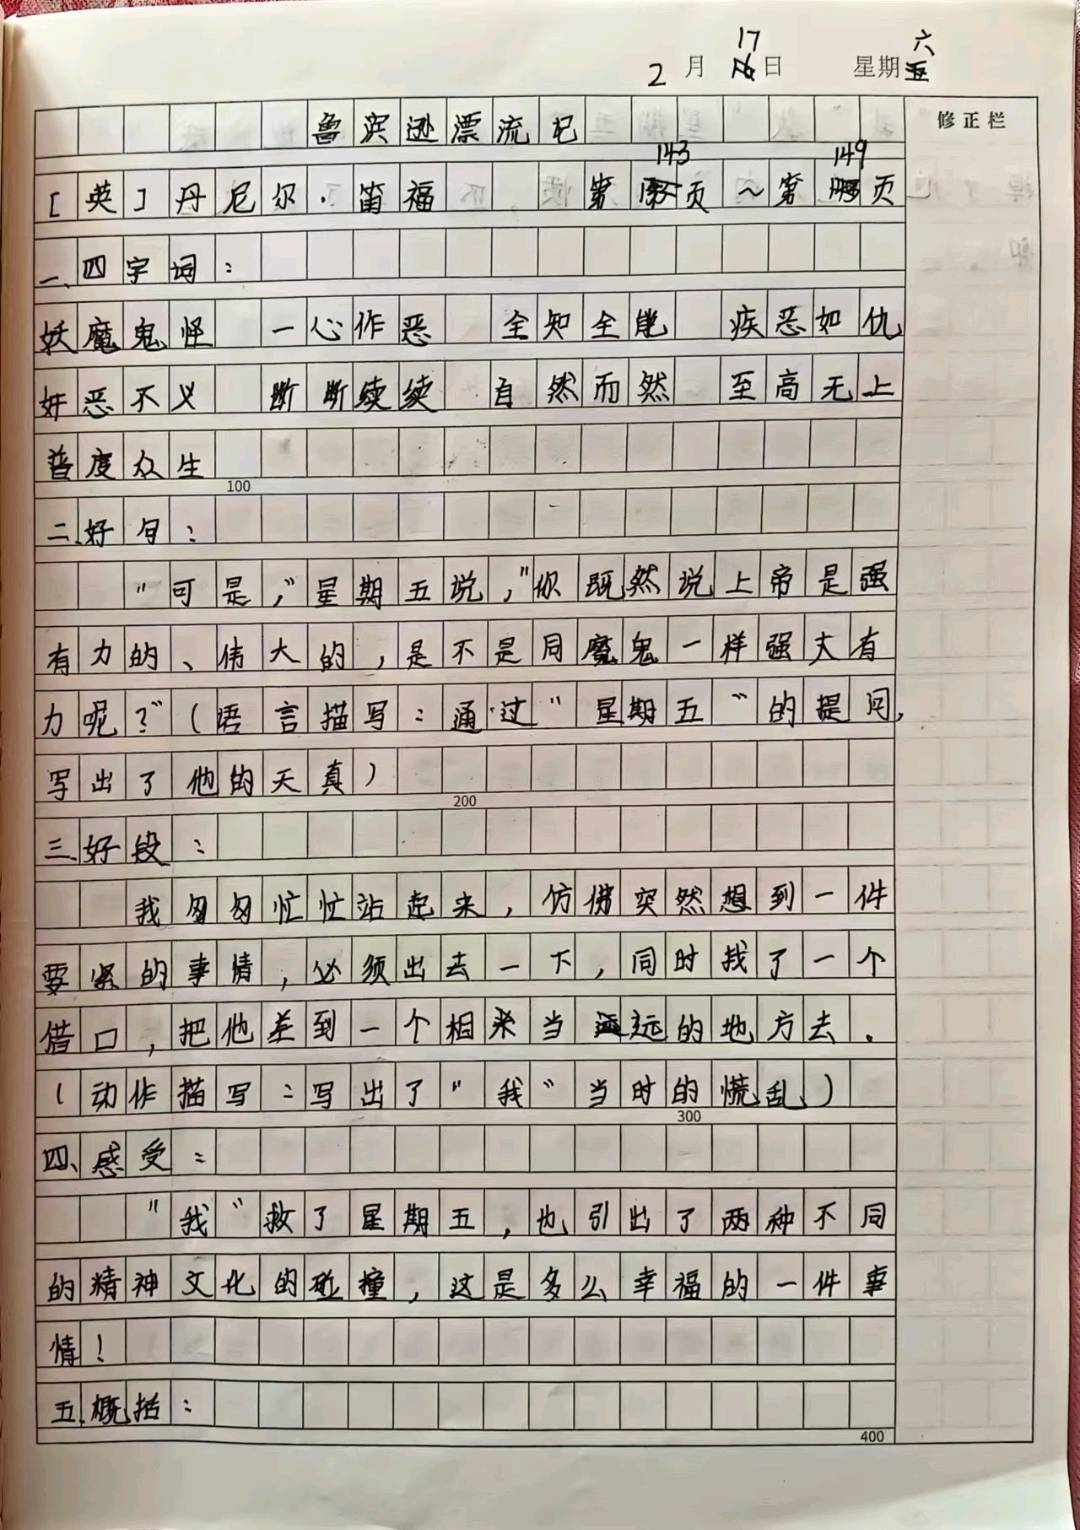 2月17日 星期六
修正栏
鲁宾逊漂流记
[英]丹尼尔·笛福 第143页~第149页
一、四字词：
妖魔鬼怪 一心作恶 全知全能 疾恶如仇
奸恶不义 断断续续 自然而然 至高无上
普度众生
100
二、好句：
“可是，”星期五说，“你既然说上帝是强
有力的、伟大的，是不是同魔鬼一样强大有
力呢？”（语言描写：通过“星期五”的提问，
写出了他的天真）
200
三、好段：
我匆匆忙忙站起来，仿佛突然想到一件
要紧的事情，必须出去一下，同时找了一个
借口，把他差到一个相当远的地方去.
（动作描写：写出了“我”当时的慌乱）
300
四、感受：
“我”救了星期五，也引出了两种不同
的精神文化的碰撞，这是多么幸福的一件事
情！
五、概括：
400